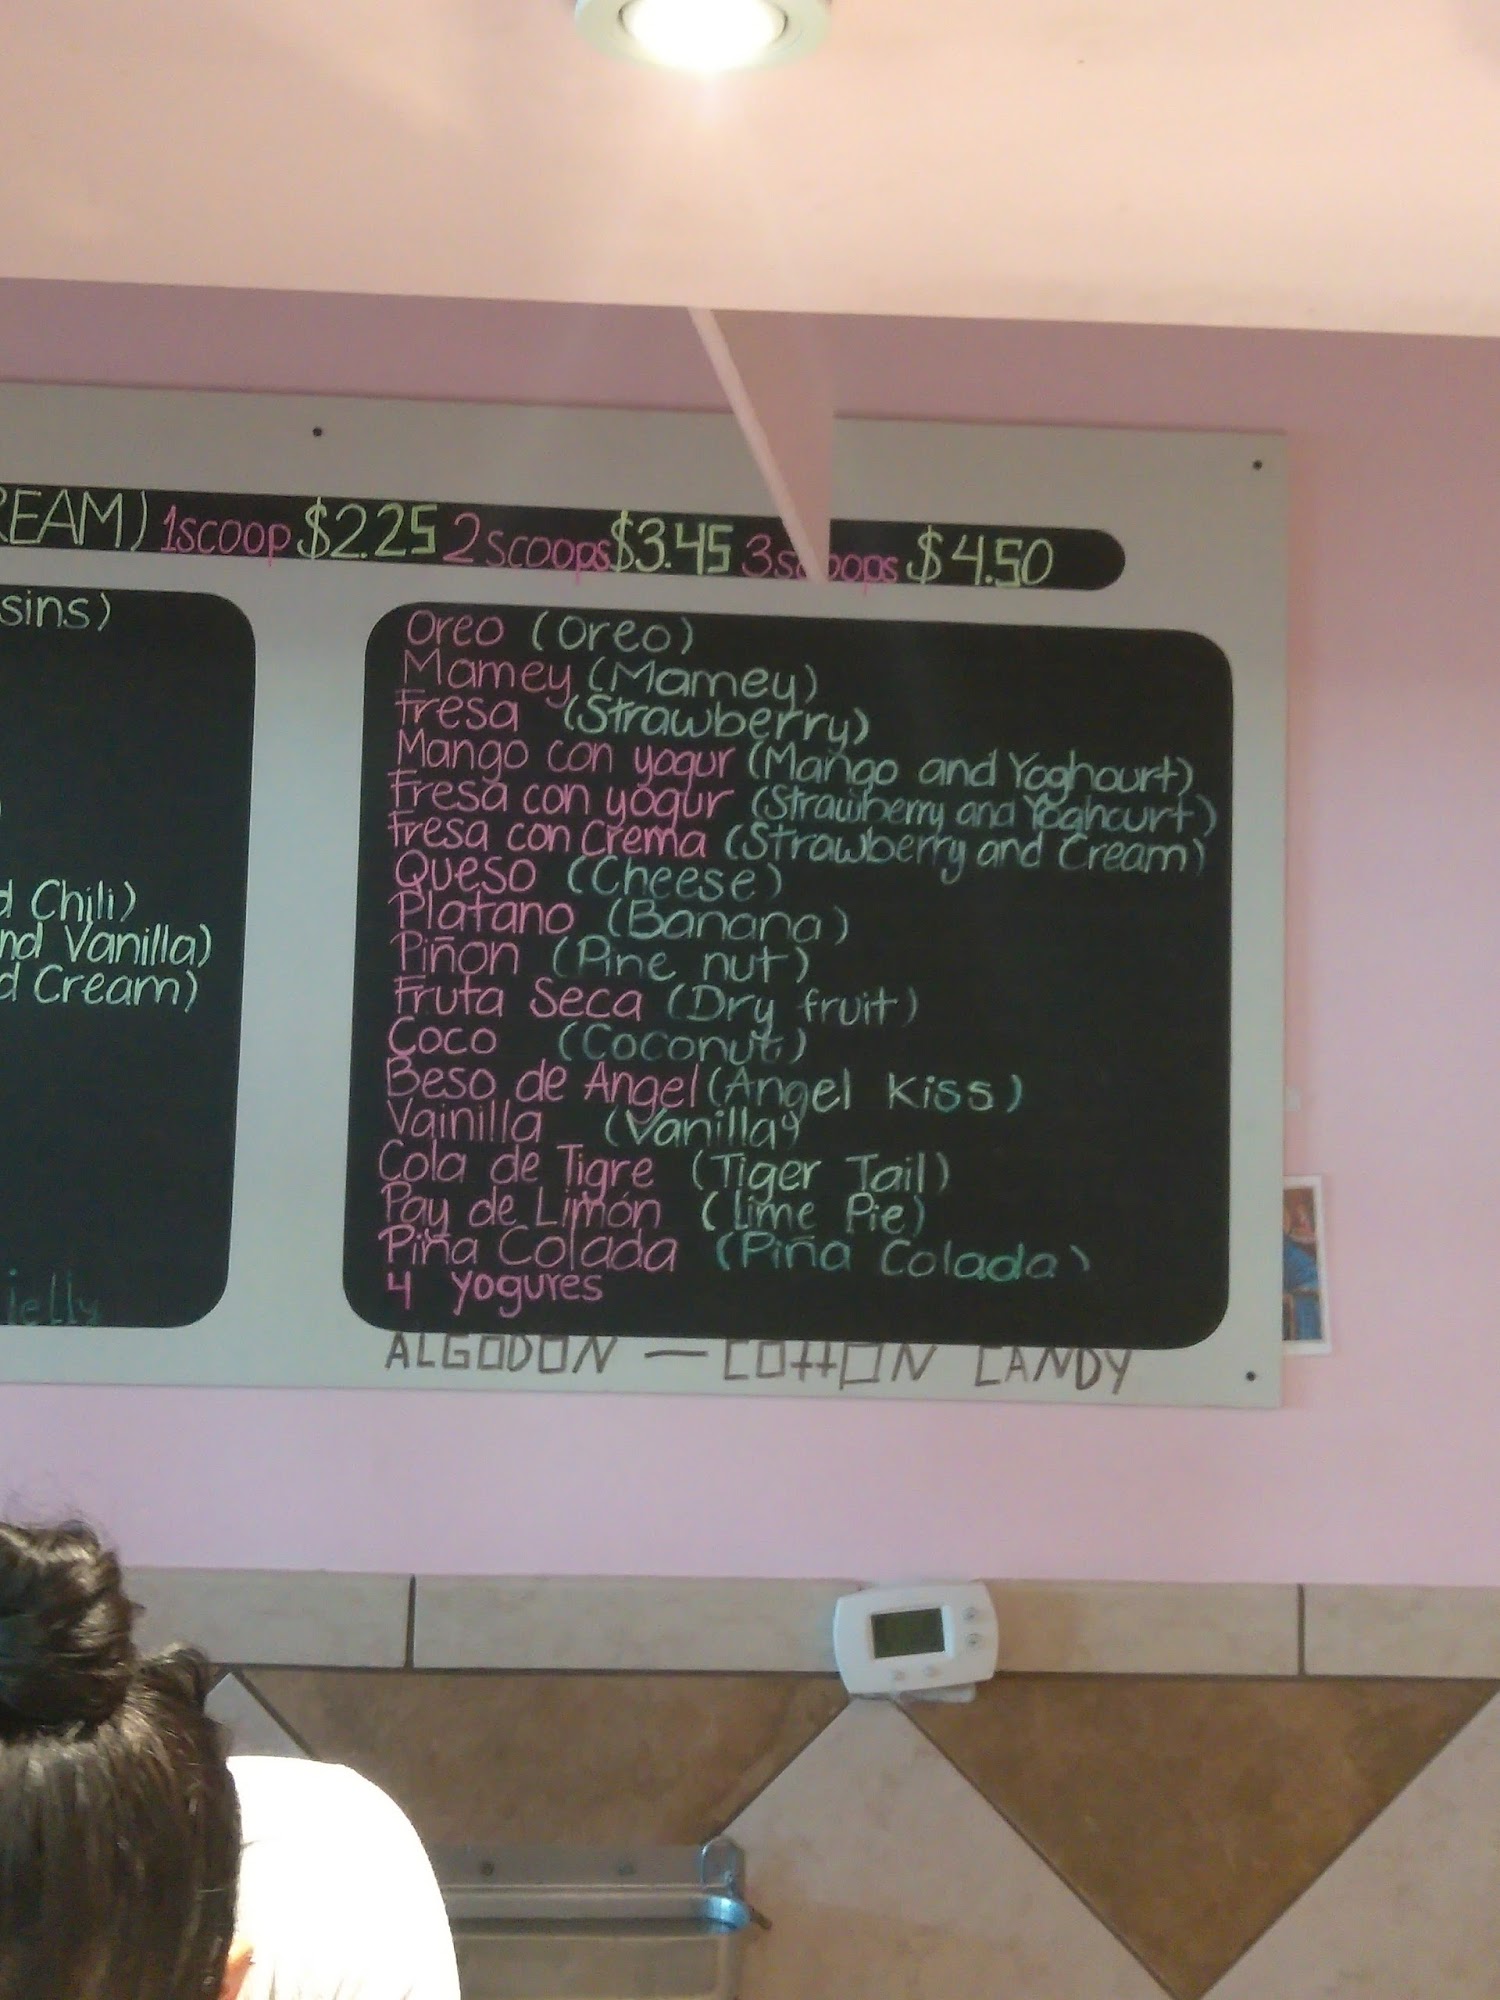 REAM) 1scoop $2.25 2scoops $3.45 3scoops $4.50
sins)
d Chili)
nd Vanilla)
d Cream)
ielly
Oreo (Oreo)
Mamey (Mamey)
Fresa (Strawberry)
Mango con yogur (Mango and Yoghourt)
Fresa con yogur (Strawberry and Yoghourt)
Fresa con Crema (Strawberry and Cream)
Queso (Cheese)
Platano (Banana)
Piñon (Pine nut)
Fruta Seca (Dry fruit)
Coco (Coconut)
Beso de Angel (Angel Kiss)
Vainilla (Vanilla)
Cola de Tigre (Tiger Tail)
Pay de Limón (Lime Pie)
Piña Colada (Piña Colada)
4 yogures
ALGODON — COTTON CANDY